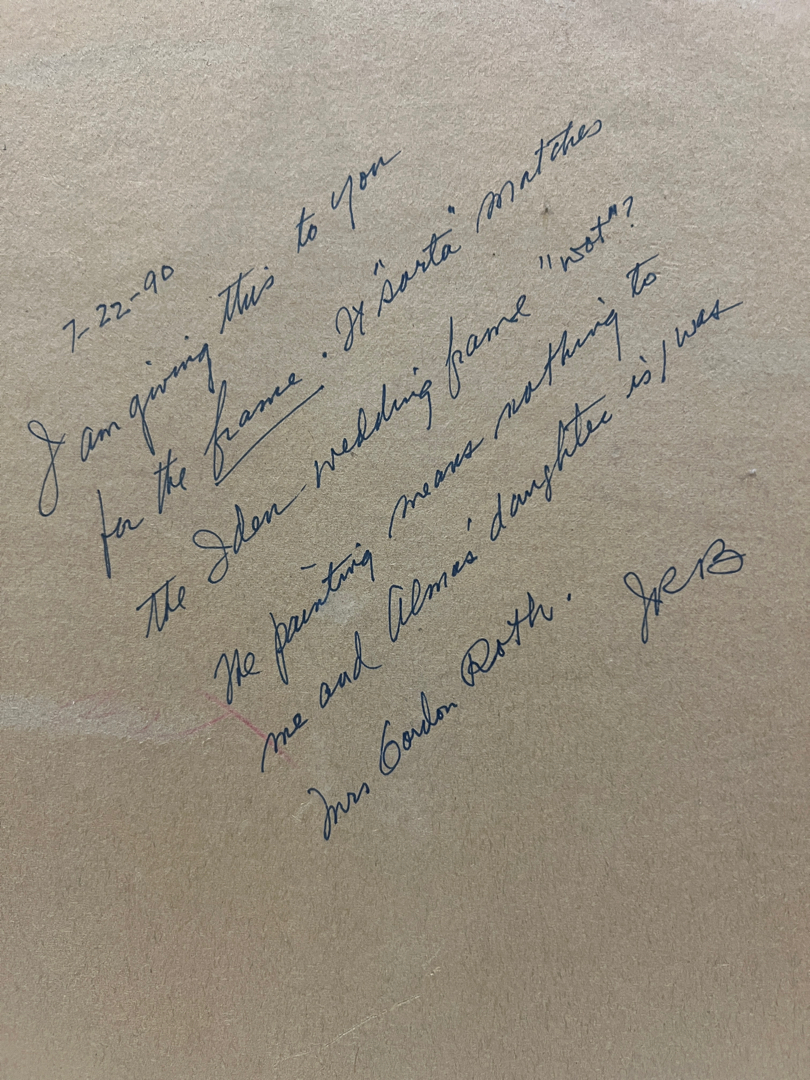 7-22-90
I am giving this to you
for the frame. It "sorta" matches
the Iden wedding frame "wot"?
The painting means nothing to
me and Almas' daughter is/was
Mrs Gordon Roth. JRB